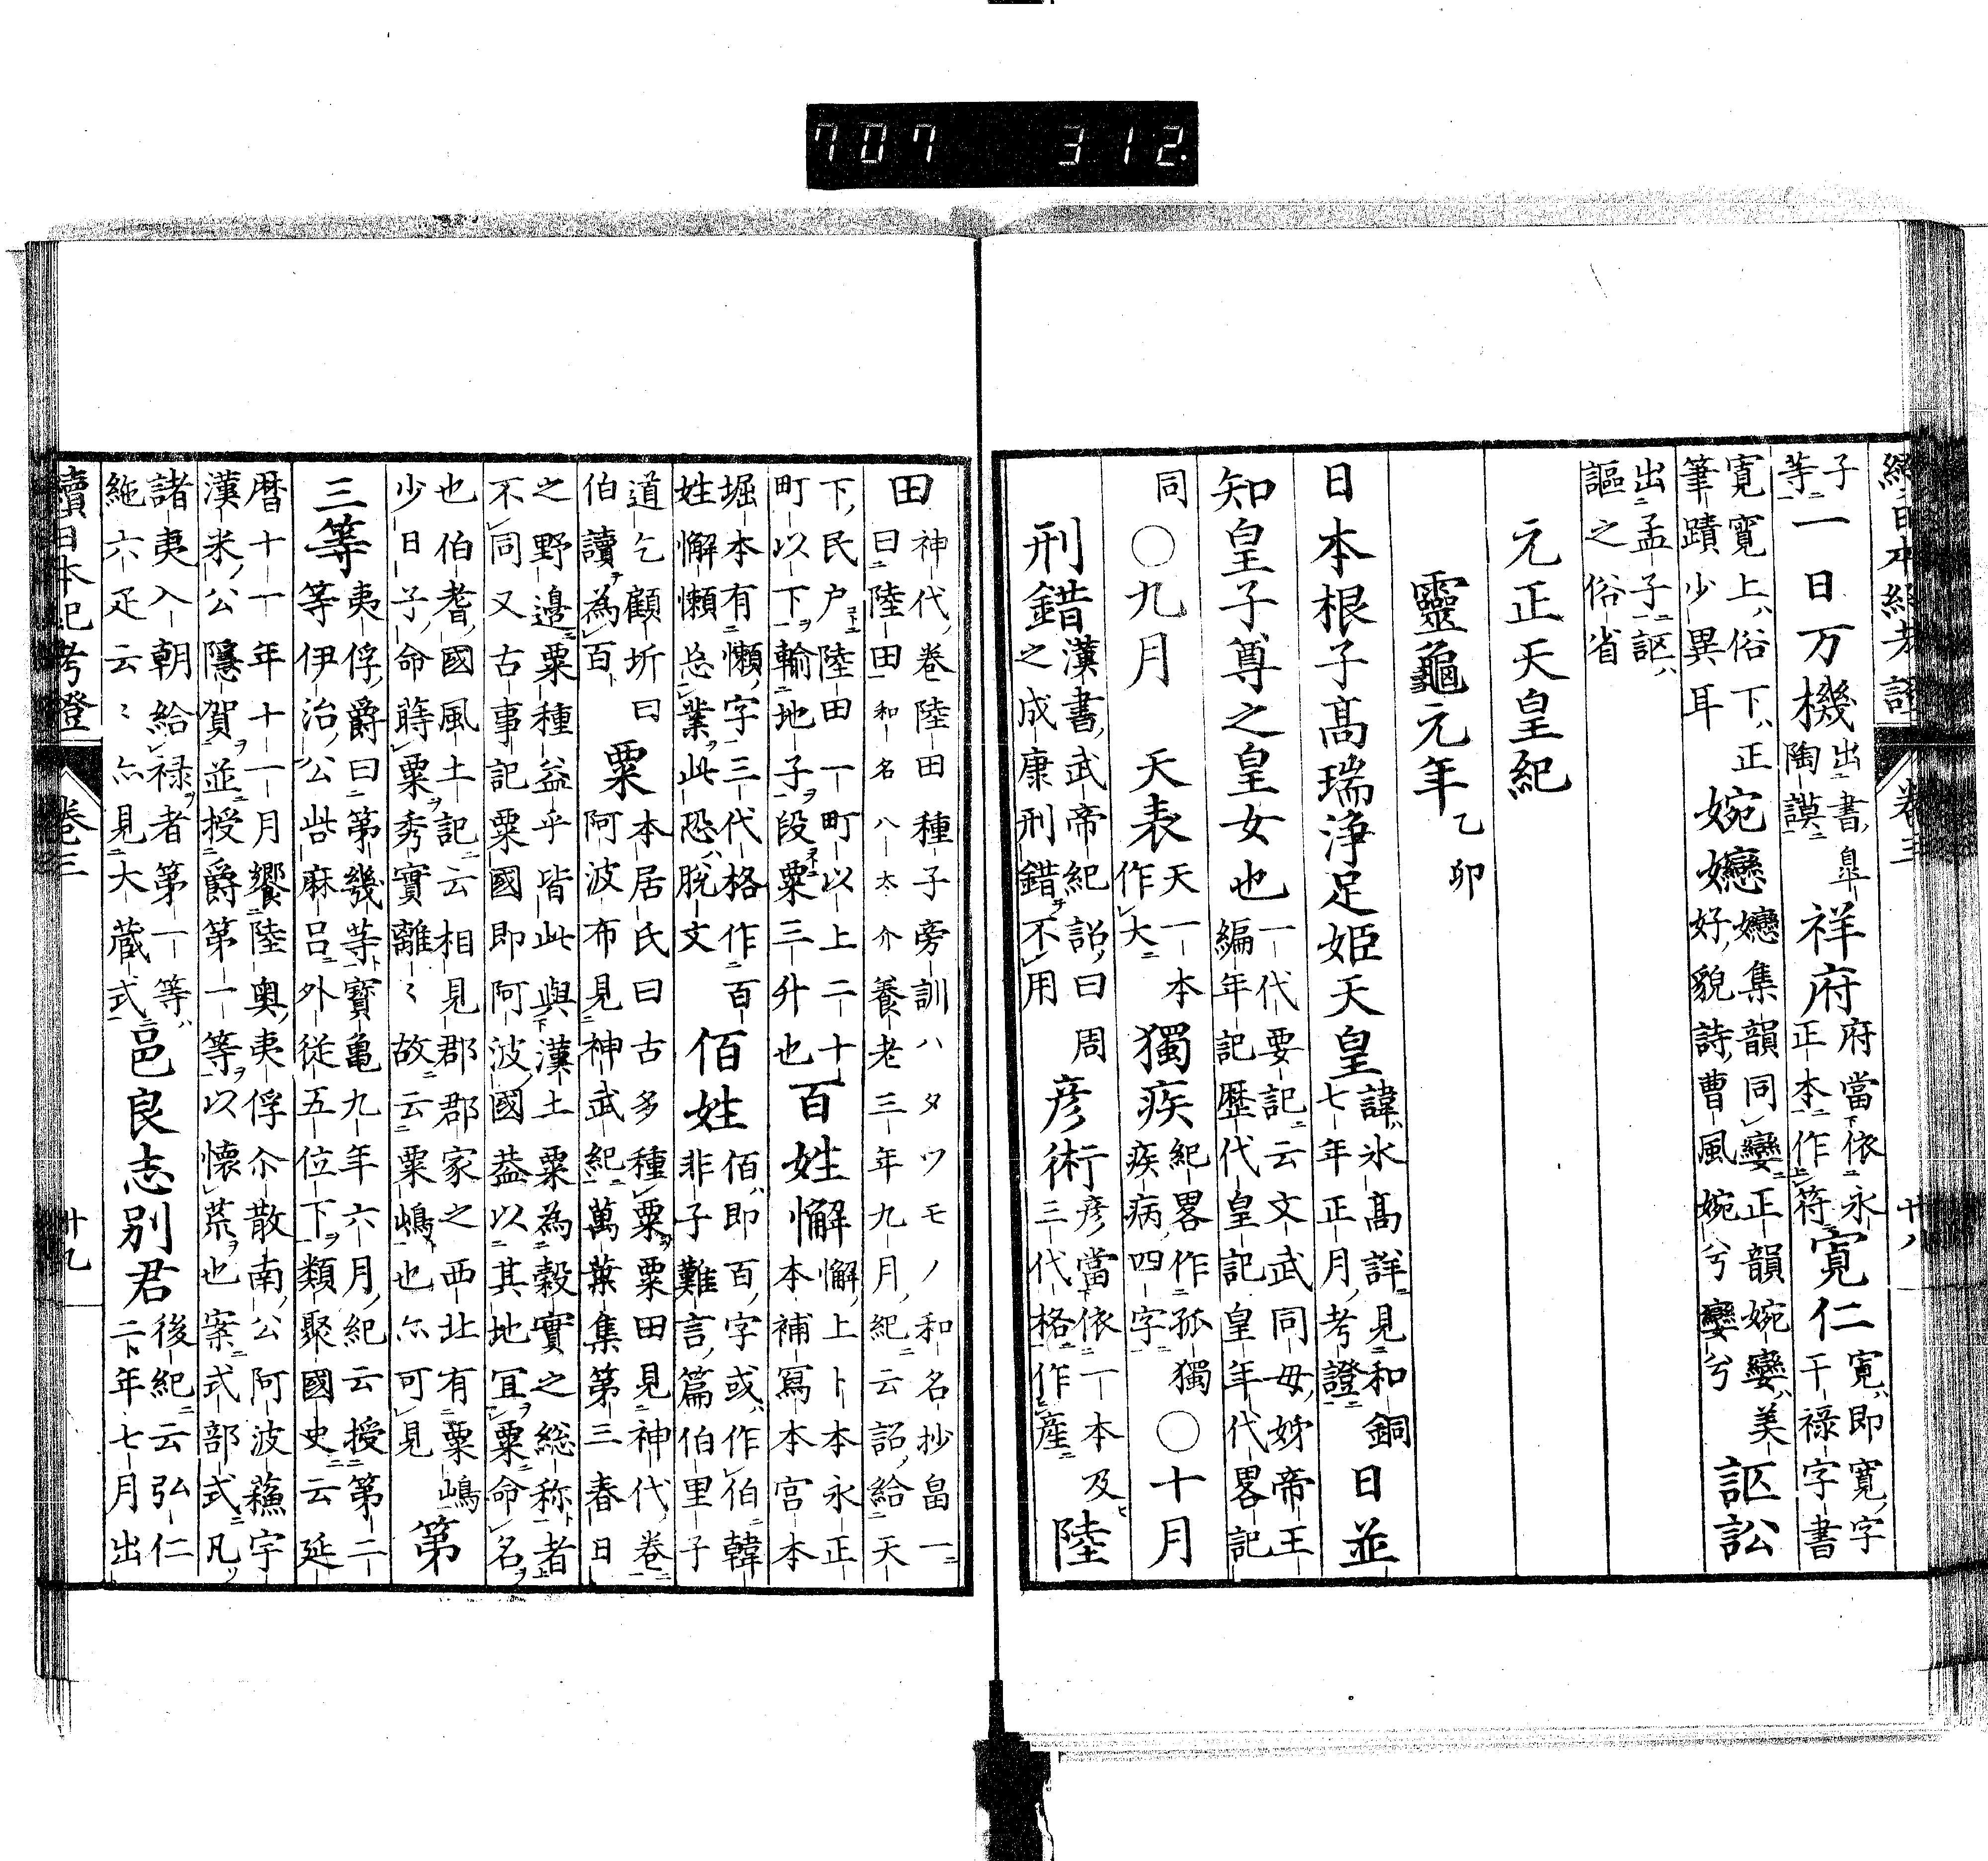 707 312.
續日本紀考證 卷三 廿八
子等一日万機出書皐陶謨祥府府當依永正本作符寬仁寛即寬字干祿字書
寬寛上俗下正筆蹟少異耳婉孌孌集韻同孌正韻婉孌美好貌詩曹風婉兮孌兮訟
出孟子謳之俗省
元正天皇紀
靈龜元年乙卯
日本根子髙瑞浄足姫天皇諱氷髙詳見和銅七年正月考證日並
知皇子尊之皇女也一代要記云文武同母姊帝王編年記歷代皇記皇年代畧記
同〇九月天表天一本作大獨疾紀畧作孤獨疾病四字〇十月
刑錯漢書武帝紀詔曰周之成康刑錯不用彦術彦當依一本及三代格作産陸
田神代卷陸田種子旁訓ハタツモノ和名抄畠一曰陸田和名八太介養老三年九月紀云詔給天
下民户陸田一町以上二十町以下輸地子段粟三升也百姓懈懈上卜本永正本補寫本宮本
堀本有懶字三代格作百姓懈懶怠業此恐脱文佰姓佰即百字或作伯韓非子難言篇伯里子
道乞顧圻曰伯讀為百粟本居氏曰古多種粟粟田見神代卷阿波布見神武紀萬葉集第三春日
之野邉粟種益乎皆此與漢土粟為穀實之総称者不同又古事記粟國即阿波國葢以其地冝粟命名
也伯耆國風土記云相見郡郡家之西北有粟嶋少日子命蒔粟秀實離〻故云粟嶋也亦可見第
三等夷俘爵曰第幾等寳亀九年六月紀云授第二等伊治公呰麻呂外從五位下類聚國史云延
暦十一年十一月饗陸奥夷俘尒散南公阿波蘓宇漢米公隱賀並授爵第一等以懐荒也案式部式凡
諸夷入朝給禄者第一等絁六疋云〻亦見大蔵式邑良志别君後紀云弘仁二年七月出
續日本紀考證 卷三 廿九